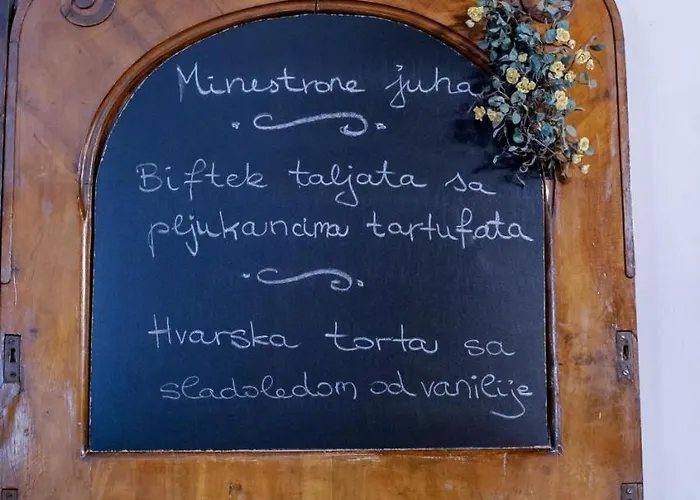 Minestrone juha
Biftek taljata sa
pljukancima tartufata
Hvarska torta sa
sladoledom od vanilije